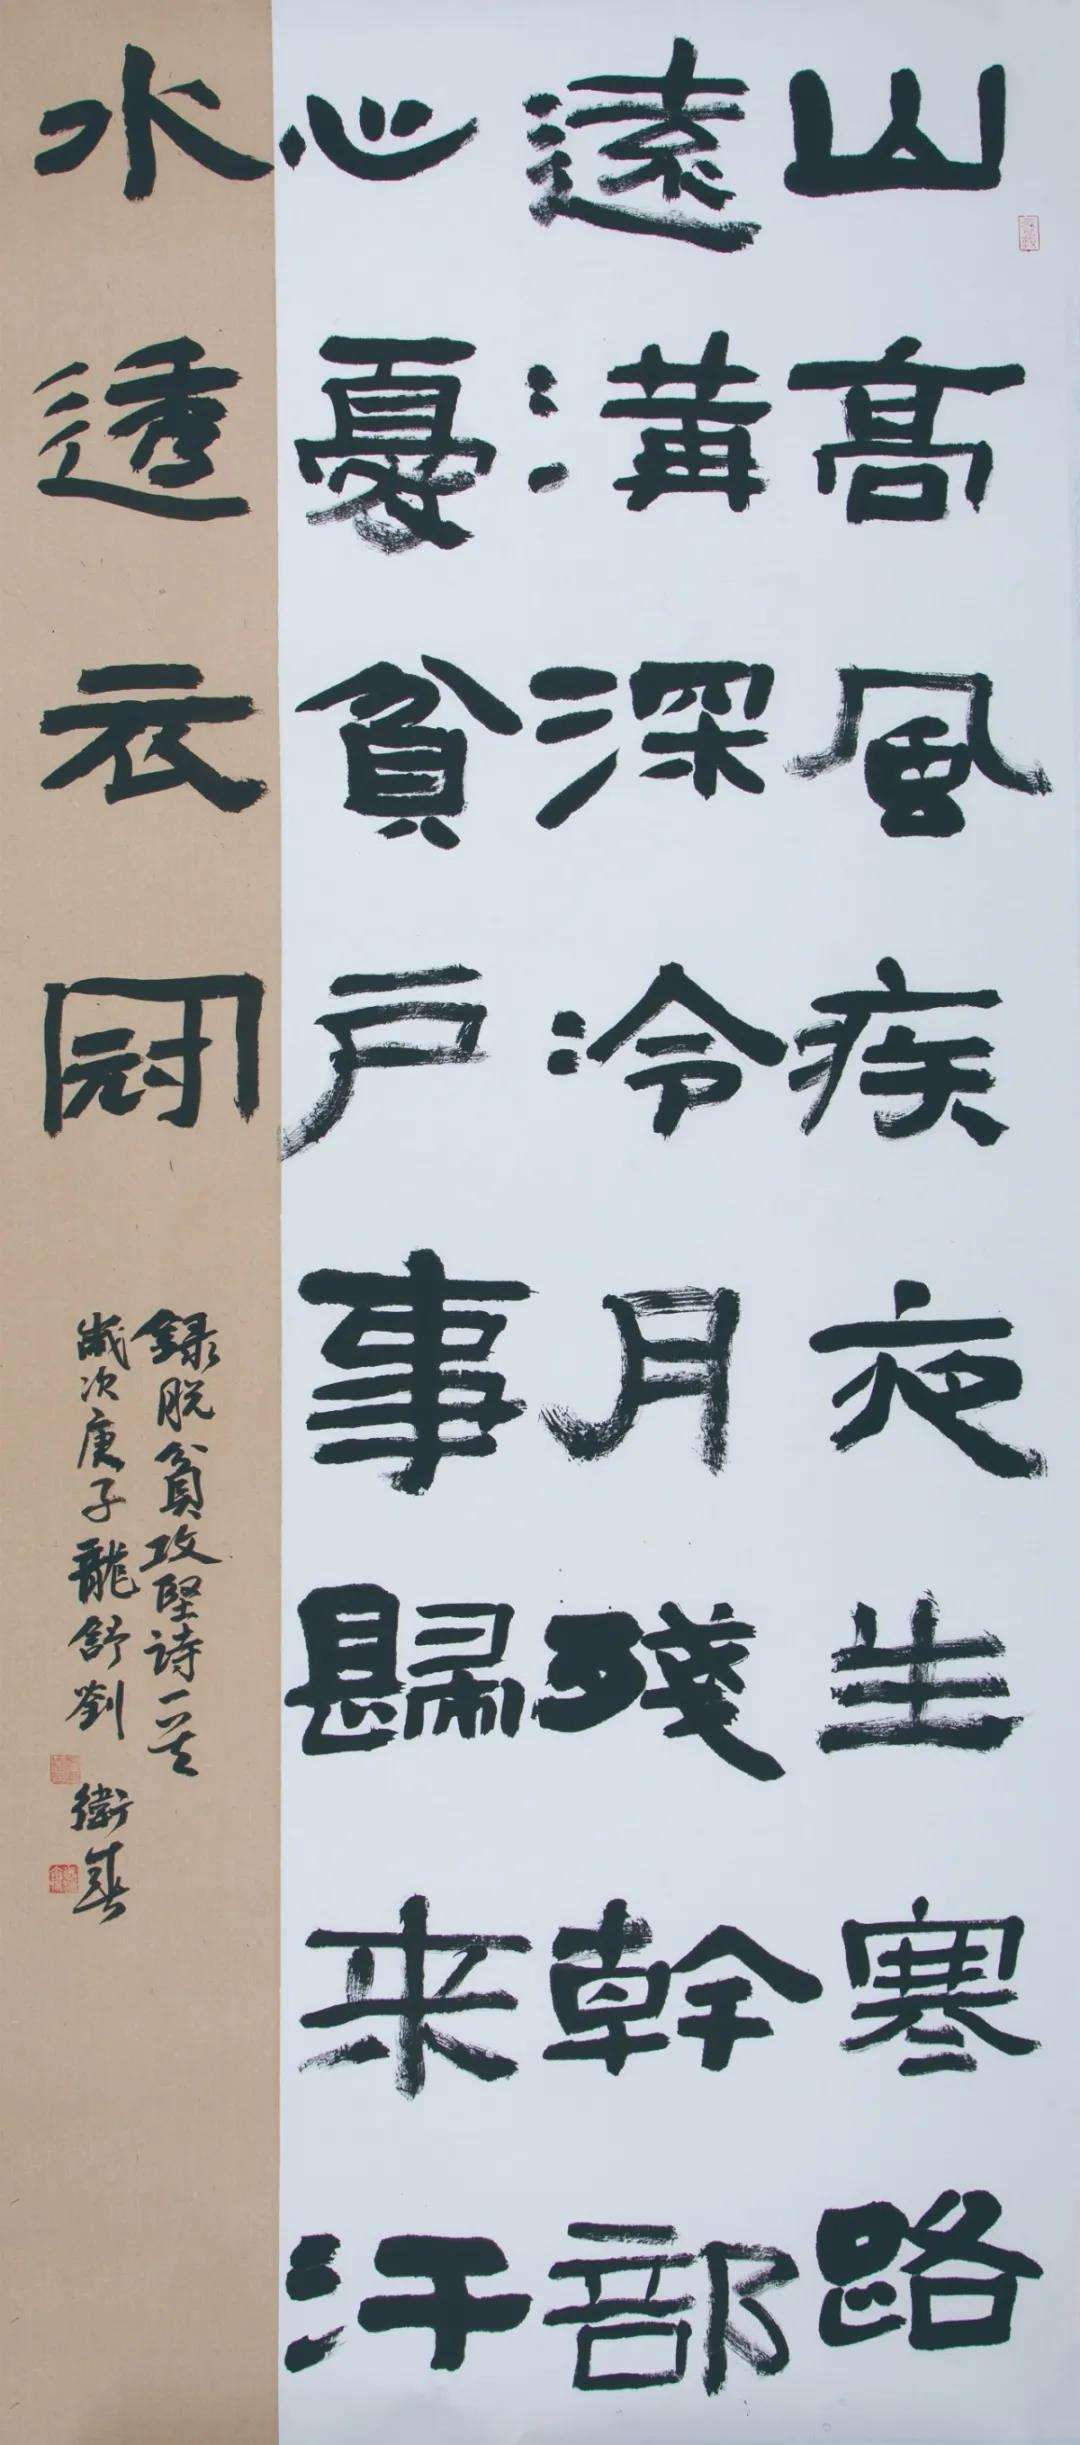 山高風疾夜生寒路
遠溝深冷月殘幹部
心憂貧戶事歸来汗
水透衣冠
録脱貧攻堅詩一首
歲次庚子龍舒劉衛春